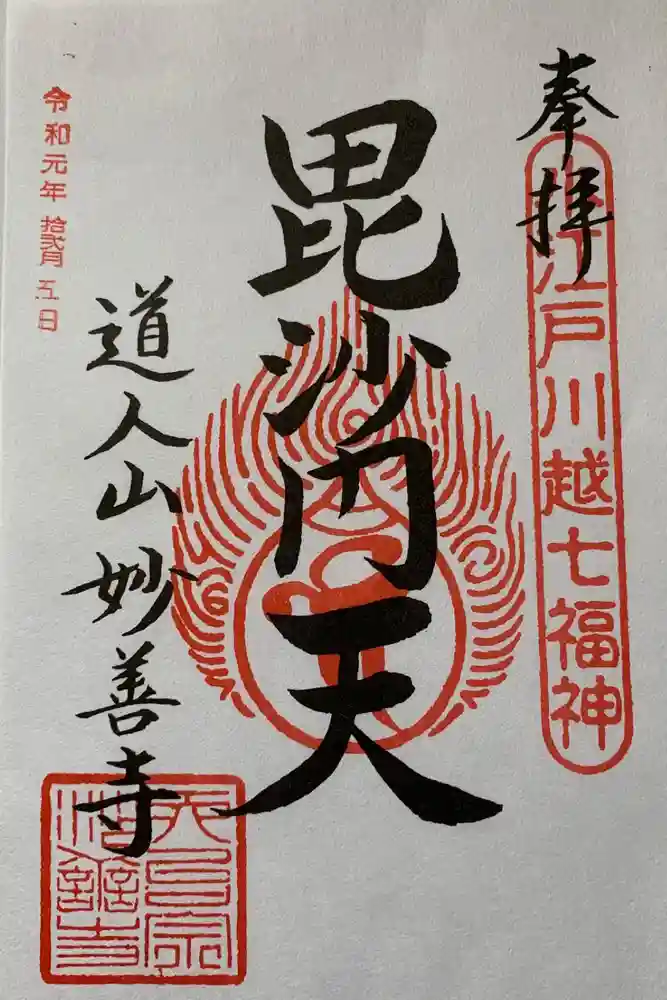 奉拝
小江戸川越七福神
毘沙門天
道人山妙善寺
令和元年拾弐月五日
天台宗
妙善寺